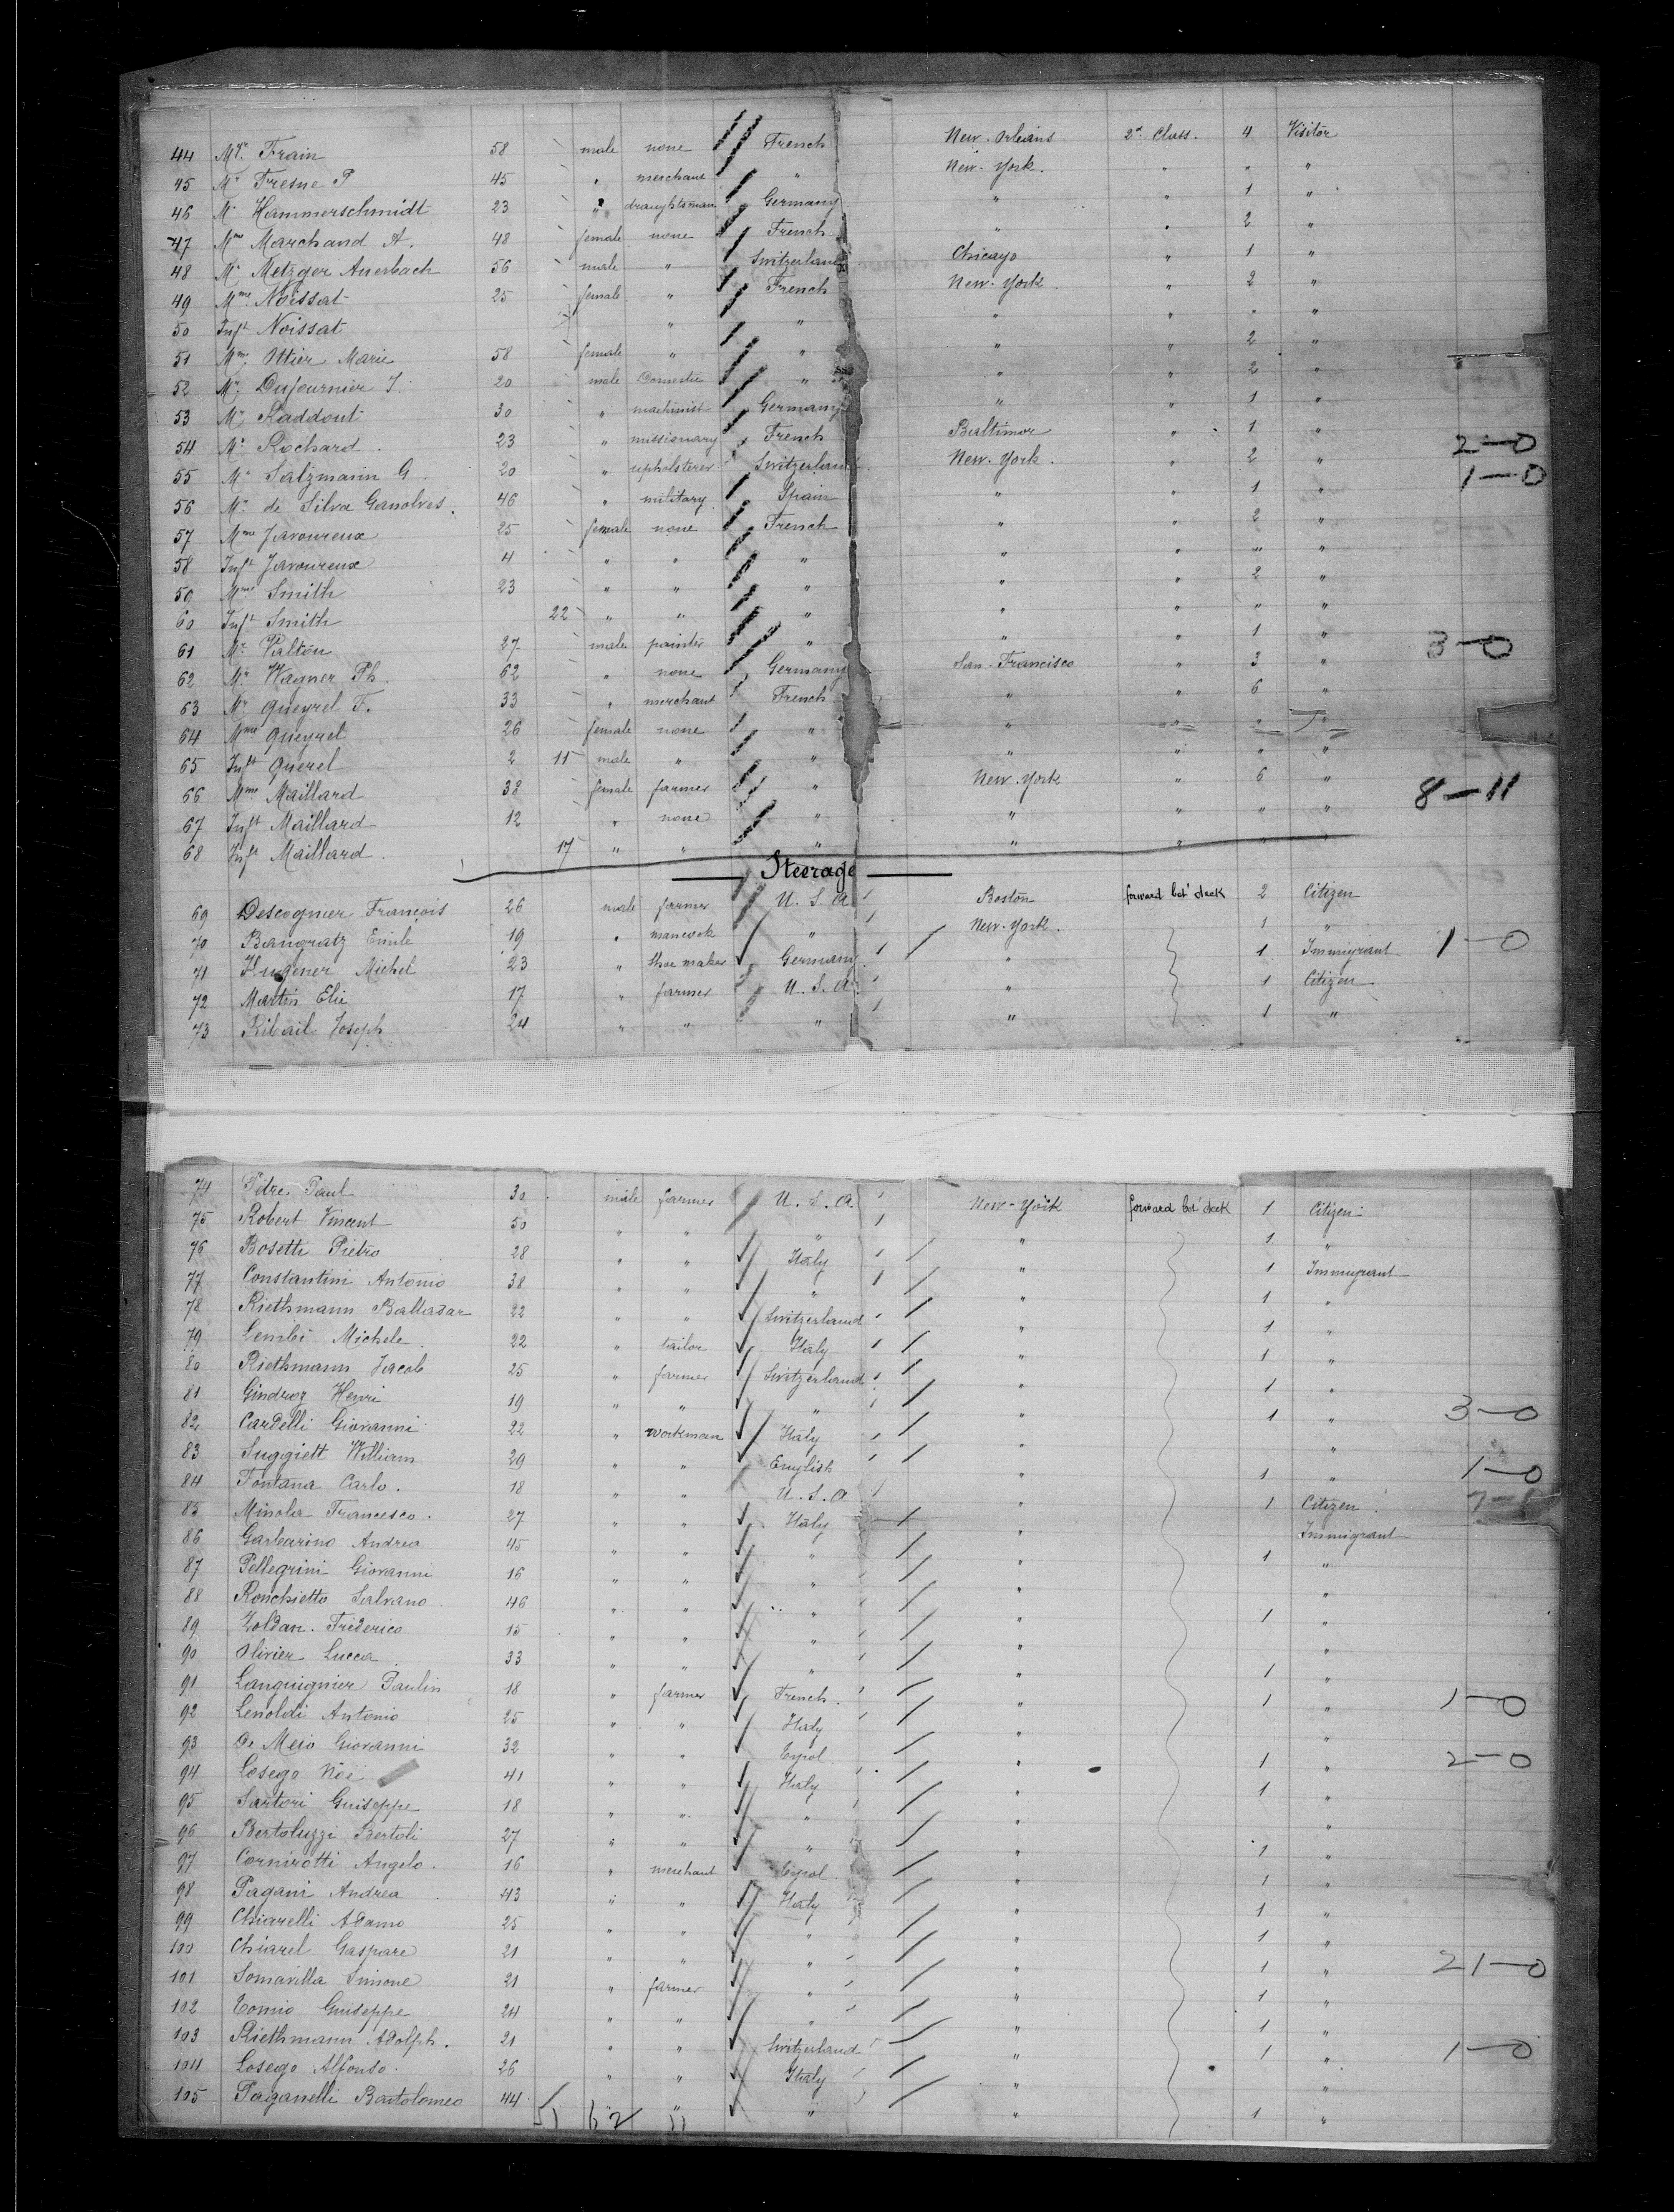 44 Mr. Frain 58 male none French New-Orleans 2d Class. 4 Visitor
45 Mr Fresne P 45 " merchant " New-York. " " "
46 Mr Hammerschmidt 23 " draughtsman Germany " " 1 "
47 Mme Marchand A. 48 female none French " " 2 "
48 Mr Metzger Auerbach 56 male " Switzerland Chicago " 1 "
49 Mme Noissat 25 female " French New-York. " 2 "
50 Inft Noissat " " " " " "
51 Mme Ottier Marie 58 female " " " " 2 "
52 Mr Dufournier J. 20 male Domestic " " " 2 "
53 Mr Raddout 30 " machinist Germany " " 1 "
54 Mr Rochard 23 " missionary French Baltimor " 1 " 2-0
55 Mr Salzmann G 20 " upholsterer Switzerland New-York. " 2 " 1-0
56 Mr de Silva Ganolves. 46 " military Spain " " 1 "
57 Mme Javoureux 25 female none French " " 2 "
58 Inft Javoureux 4 " " " " " " "
59 Mme Smith 23 " " " " " 2 "
60 Inft Smith 22 " " " " " " "
61 Mr Valton 27 male painter " " " 1 " 3-0
62 Mr Wagner Ph. 62 " none Germany San-Francisco " 3 "
63 Mr Queyrel F. 33 " merchant French " " 6 "
64 Mme Queyrel 26 female none " " " " "
65 Inft Querel 2 11 male " " " " " "
66 Mme Maillard 38 female farmer " New-York " 6 " 8-11
67 Inft Maillard 12 " none " " " " "
68 Inft Maillard. 17 " " " " " " "
Steerage
69 Descognier François 26 male farmer U.S.A Boston forward bet' deck 2 Citizen
70 Bangratz Emile 19 " mancook " New-York. 1 "
71 Hugener Michel 23 " Shoe maker Germany " 1 Immigrant 1-0
72 Martin Elie 17 " farmer U.S.A " 1 Citizen
73 Ribail Joseph 24 " " " " 1 "
74 Pitre Paul 30 male farmer U.S.A New-York forward bet' deck 1 Citizen
75 Robert Vincent 50 " " " " 1 "
76 Bosetti Pietro 28 " " Italy " 1 Immigrant
77 Constantini Antonio 38 " " " " 1 "
78 Riethmann Baltasar 22 " " Switzerland " 1 "
79 Lembi Michele 22 " tailor Italy " 1 "
80 Riethmann Jacob 25 " farmer Switzerland " 1 "
81 Gindroz Henri 19 " " " " 1 " 3-0
82 Cardelli Giovanni 22 " workman Italy " "
83 Suggiett William 29 " " English " 1 " 1-0
84 Fontana Carlo. 18 " " U.S.A " 1 Citizen
85 Minola Francesco. 27 " " Italy " Immigrant
86 Garbarino Andrea 45 " " " " 1 "
87 Pellegrini Giovanni 16 " " " " "
88 Ronchietto Salvano 46 " " " " 1 "
89 Zoldan. Friderico 15 " " " " "
90 Olivier Lucca 33 " " " " 1 "
91 Languignier Paulin 18 " farmer French. " 1 " 1-0
92 Lenoldi Antonio 25 " " Italy " "
93 De Meio Giovanni 32 " " Tyrol " 1 " 2-0
94 Losego Noë 41 " " Italy " 1 "
95 Sartori Guiseppe 18 " " " " "
96 Bertoluzzi Bertoli 27 " " " " 1 "
97 Cornirotti Angelo. 16 " merchant Tyrol " 1 "
98 Pagani Andrea 43 " " Italy " 1 "
99 Chiarelli Adamo 25 " " " " 1 "
100 Chiarel Gaspare 21 " " " " 1 " 21-0
101 Somavilla Simone 21 " farmer " " 1 "
102 Tomio Guiseppe 24 " " " " 1 "
103 Riethmann Adolph. 21 " " Switzerland " 1 " 1-0
104 Losego Alfonso. 26 " " Italy " "
105 Paganelli Bartolomeo 44 " " " " 1 "